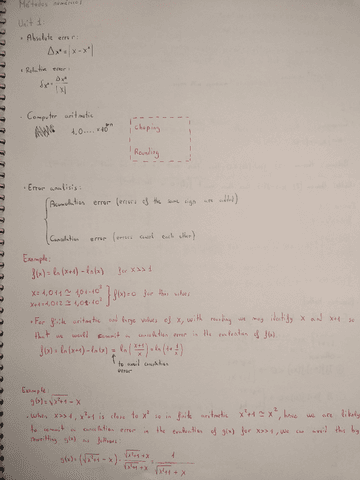 Unit 1
• Absolute error:
Δx* = |x - x*|
• Relative error:
δx* = Δx* / |x|
• Computer aritmetic
Choping
Rounding
• Error analisis:
Accumulation error (errors of the same sign are added)
Cancelation error (errors cancel each other)
Example:
f(x) = ln(x+1) - ln(x) for x>>1
f(x)=0 for this values
• For finite aritmetic and large values of x, with rounding we may identify x and x+1 so
that we would commit a cancelation error in the evaluation of f(x).
f(x) = ln(x+1) - ln(x) = ln(x+1 / x) = ln(1 + 1/x)
to avoid cancelation
error
Example:
g(x) = √x²+1 - x
• When x>>1, x²+1 is close to x² so in finite aritmetic x²+1 ≅ x², hence we are likely
to commit a cancelation error in the evaluation of g(x) for x>>1, we can avoid this by
rewriting g(x) as follows
g(x) = (√x²+1 - x) · √x²+1 + x / √x²+1 + x = 1 / √x²+1 + x